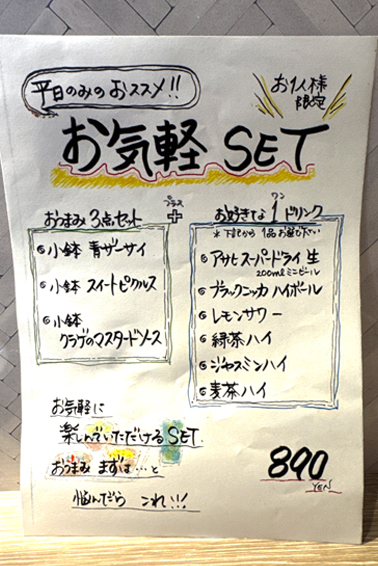 平日のみのおススメ!!
お1人様
限定
お気軽 SET
おつまみ3点セット
プラス
+
ワン
お好きな 1 ドリンク
小鉢 青ザーサイ
小鉢 スイートピクルス
小鉢
クラゲのマスタードソース
※下記から 1品お選び下さい
アサヒスーパードライ 生
200mlミニビール
ブラックニッカ ハイボール
レモンサワー
緑茶ハイ
ジャスミンハイ
麦茶ハイ
お気軽に
楽しんでいただけるSET.
おつまみ まずは…と
悩んだら これ!!!
890
YEN